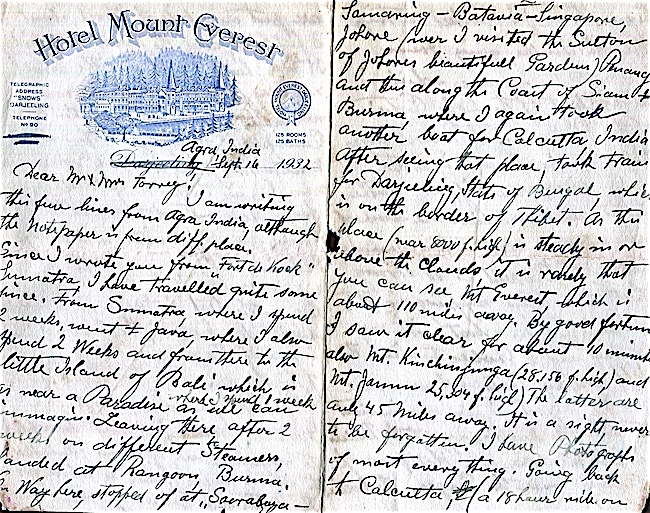 Hotel Mount Everest
TELEGRAPHIC
ADDRESS
"SNOWS"
DARJEELING
TELEPHONE
No 90
125 ROOMS
125 BATHS
Agra, India
Darjeeling Sept. 16 1932
Dear Mr & Mrs Torrey!
I am writing
this few lines from Agra India, although
the notepaper is from diff. place.
Since I wrote you from "Fort de Kock"
Sumatra, I have travelled quite some
since. From Sumatra where I spend
2 weeks, went to Java, where I also
spend 2 Weeks and from there to the
little Island of Bali which is
as near a Paradise as we can
where I spend 1 week
immagin. Leaving there after 2
weeks on different Steamers,
landed at Rangoon, Burma.
Way here, stopped of at "Soerabaya –
Samarang – Batavia – Singapore,
Johore (wer I visited the Sultan
of Johores beautifull Gardens) Penang
and then along the Coast of Siam &
Burma, where I again took
another boat for Calcutta India
After seeing that place, took train
for Darjeeling, State of Bengal, which
is on the border of Thibet. As this
place (near 8000 f. high) is steady in or
above the clouds, it is rarely that
you can see, Mt Everest which is
about 110 miles away. By good fortune
I saw it clear for about 10 minutes
also Mt. Kinchinjunga (28,156 f. high) and
Mt. Jannu 25,304 f. high) The latter are
only 45 Miles away. It is a sight never
to be forgotten. I have Photographs
of most everything. Going back
to Calcutta, (a 18 hour ride on